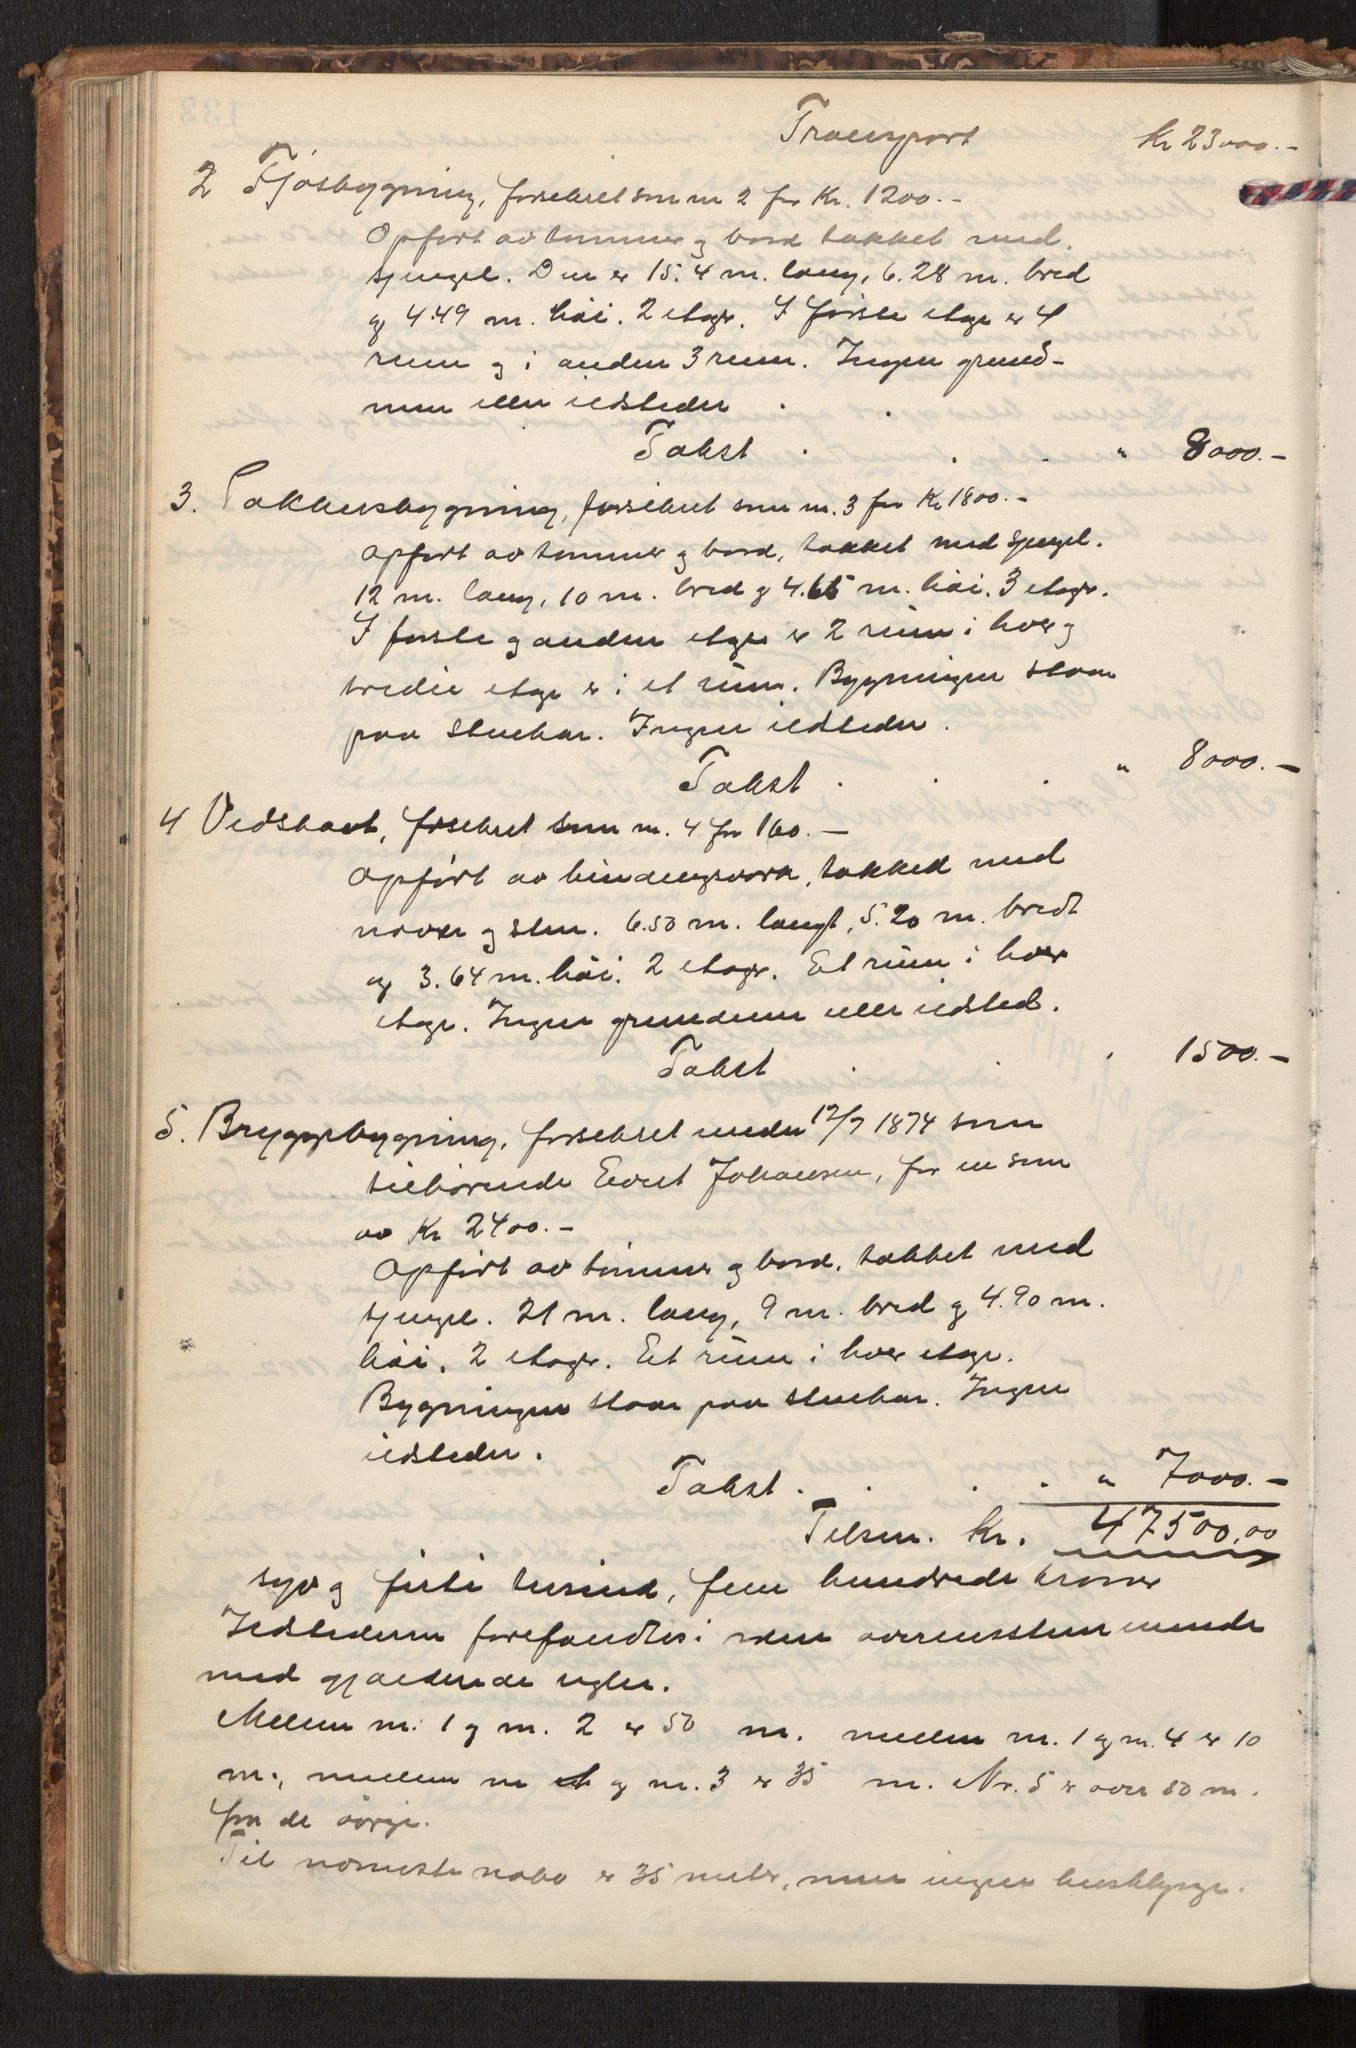 Transport Kr 23000.-
2 Fjøsbygning, forsikret som nr 2 for Kr. 1200.-
Opført av tømmer og bord takket med
spugel. Den er 15.4 m. lang, 6.28 m. bred
og 4.49 m. høi. 2 etager. I første etage er 4
rum og i anden 3 rum. Ingen grund-
mur eller ildsteder
Takst . . . . " 8000.-
3. Pakhusbygning, forsikret som nr. 3 for Kr 1800.-
Opført av tømmer og bord, takket med spugel.
12 m. lang, 10 m. bred og 4.65 m. høi. 3 etager.
I første og anden etage er 2 rum i hver og
tredie etage er i et rum. Bygningen staar
paa stenkar. Ingen ildsteder.
Takst . . . " 8000.-
4 Vedskaat, forsikret som nr. 4 for 160.-
Opført av bindingsverk, takked med
næver og sten. 6.50 m. langt, 5.20 m. bredt
og 3.64 m. høi. 2 etager. Et rum i hver
etage. Ingen grundmur eller ildsted.
Takst . . 1500.-
5. Bryggebygning, forsikret under 12/7 1874 som
tilhørende Evert Johansen, for en sum
av Kr 2400.-
Opført av tømmer og bord, takket med
spugel. 21 m. lang, 9 m. bred og 4.90 m.
høi. 2 etager. Et rum i hver etage.
Bygningen staar paa stenkar. Ingen
ildsteder.
Takst . . . " 7000.-
Tilsm. Kr. 47500.00
syv og firti tusind, fem hundrede kroner
Ildstederne forefandtes i orden overensstemmende
med gjældende regler.
Mellem nr. 1 og nr. 2 er 50 m. mellem nr. 1 og nr. 4 er 10
m., mellem nr og nr. 3 er 35 m. Nr. 5 er over 50 m.
fra de øvrige.
Til nærmeste nabo er 35 meter, men ingen husklynge.
133